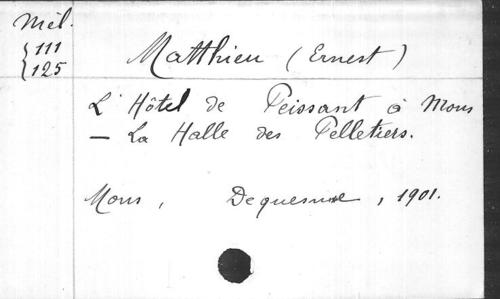 Mél.
{111
{125
Matthieu (Ernest)
L'Hôtel de Peissant à Mons
— La Halle des Pelletiers.
Mons, Dequesne, 1901.